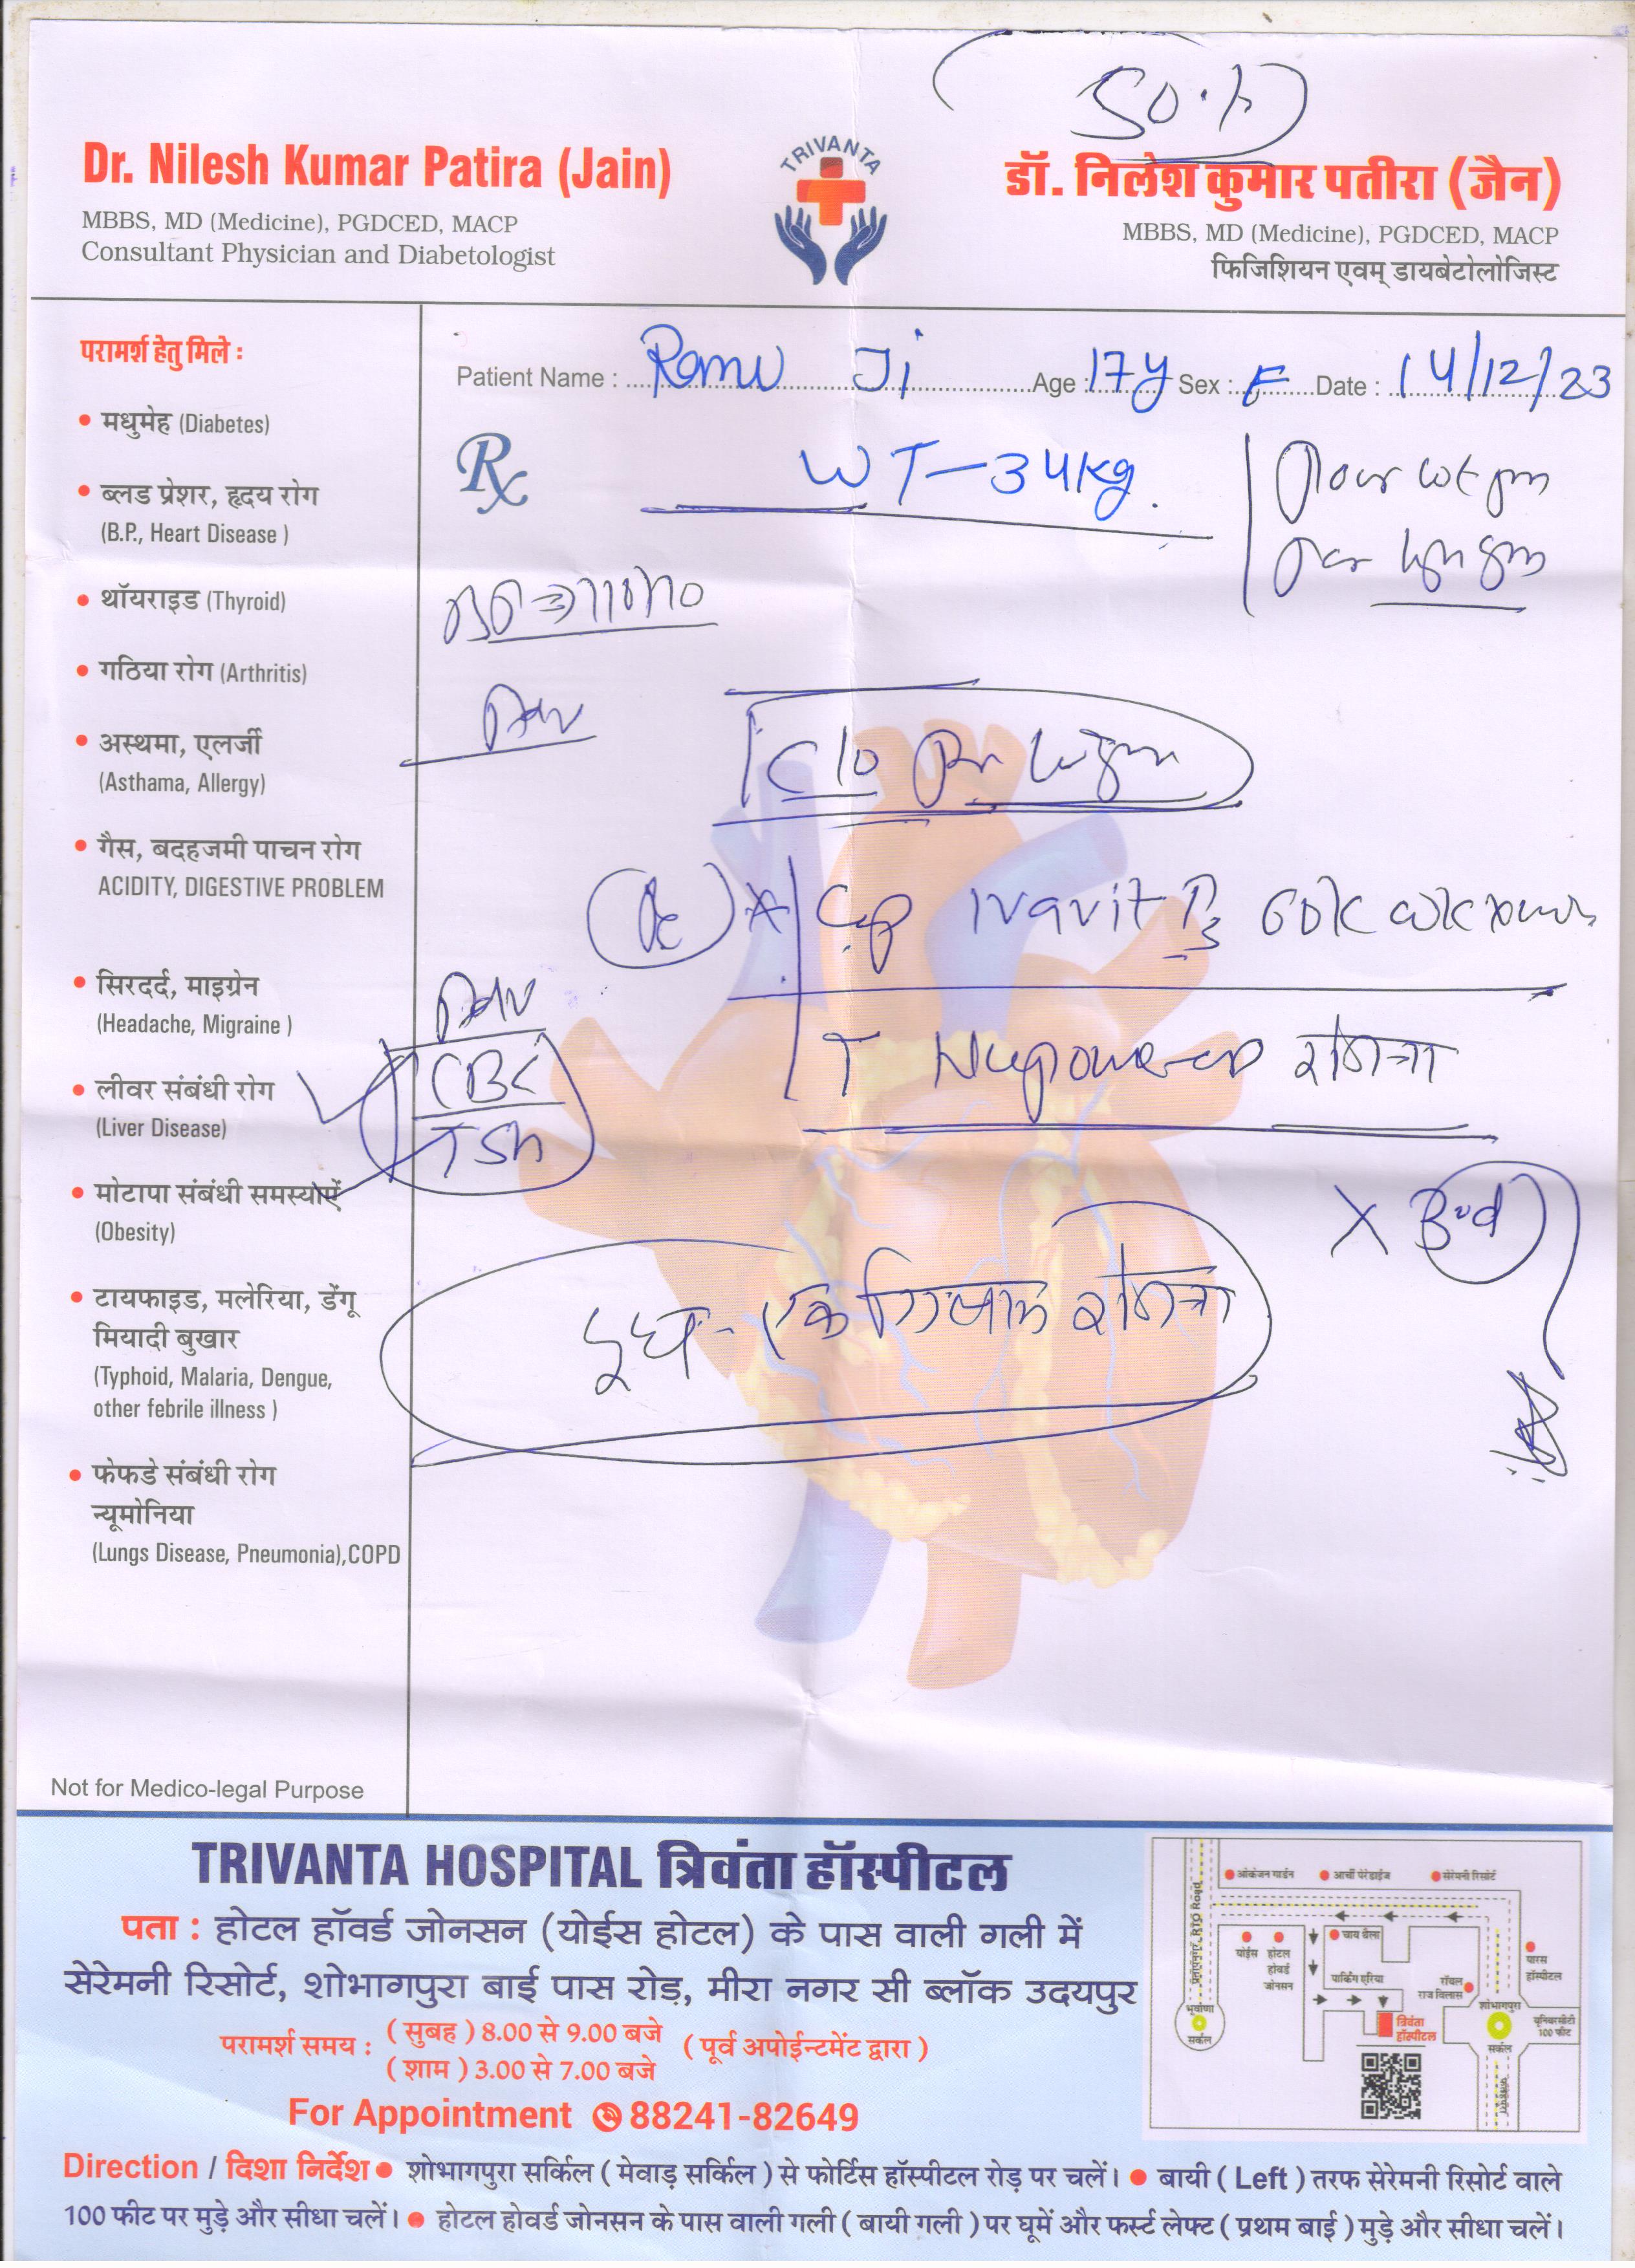 Dr. Nilesh Kumar Patira (Jain)
MBBS, MD (Medicine), PGDCED, MACP
Consultant Physician and Diabetologist
TRIVANTA
डॉ. निलेश कुमार पतीरा (जैन)
MBBS, MD (Medicine), PGDCED, MACP
फिजिशियन एवम् डायबेटोलोजिस्ट
Patient Name : Ramu Ji Age : 17y Sex : F Date : 14/12/23
Rx
WT-34kg.
110/70
C/o
Cap D3 60K
T रोजाना
CBC
TSH
दूध - एक गिलास रोजाना
परामर्श हेतु मिले :
• मधुमेह (Diabetes)
• ब्लड प्रेशर, हृदय रोग
(B.P., Heart Disease )
• थॉयराइड (Thyroid)
• गठिया रोग (Arthritis)
• अस्थमा, एलर्जी
(Asthama, Allergy)
• गैस, बदहजमी पाचन रोग
ACIDITY, DIGESTIVE PROBLEM
• सिरदर्द, माइग्रेन
(Headache, Migraine )
• लीवर संबंधी रोग
(Liver Disease)
• मोटापा संबंधी समस्याऐं
(Obesity)
• टायफाइड, मलेरिया, डेंगू
मियादी बुखार
(Typhoid, Malaria, Dengue,
other febrile illness )
• फेफडे संबंधी रोग
न्यूमोनिया
(Lungs Disease, Pneumonia),COPD
Not for Medico-legal Purpose
TRIVANTA HOSPITAL त्रिवंता हॉस्पीटल
पता : होटल हॉवर्ड जोनसन (योईस होटल) के पास वाली गली में
सेरेमनी रिसोर्ट, शोभागपुरा बाई पास रोड़, मीरा नगर सी ब्लॉक उदयपुर
परामर्श समय : ( सुबह ) 8.00 से 9.00 बजे ( पूर्व अपोईन्टमेंट द्वारा )
( शाम ) 3.00 से 7.00 बजे
For Appointment 88241-82649
ओकेजन गार्डन
आर्ची पेरेडाईज
सेरेमनी रिसोर्ट
चाय थैला
योईस
होटल होवर्ड जोनसन
पार्किंग एरिया
रॉयल राज विलास
पारस हॉस्पीटल
त्रिवंता हॉस्पीटल
शोभागपुरा सर्कल
यूनिवरसीटी 100 फीट
भूवाणा सर्कल
Direction / दिशा निर्देश • शोभागपुरा सर्किल ( मेवाड़ सर्किल ) से फोर्टिस हॉस्पीटल रोड़ पर चलें। • बायी ( Left ) तरफ सेरेमनी रिसोर्ट वाले
100 फीट पर मुड़े और सीधा चलें। • होटल होवर्ड जोनसन के पास वाली गली ( बायी गली ) पर घूमें और फर्स्ट लेफ्ट ( प्रथम बाई ) मुड़े और सीधा चलें।